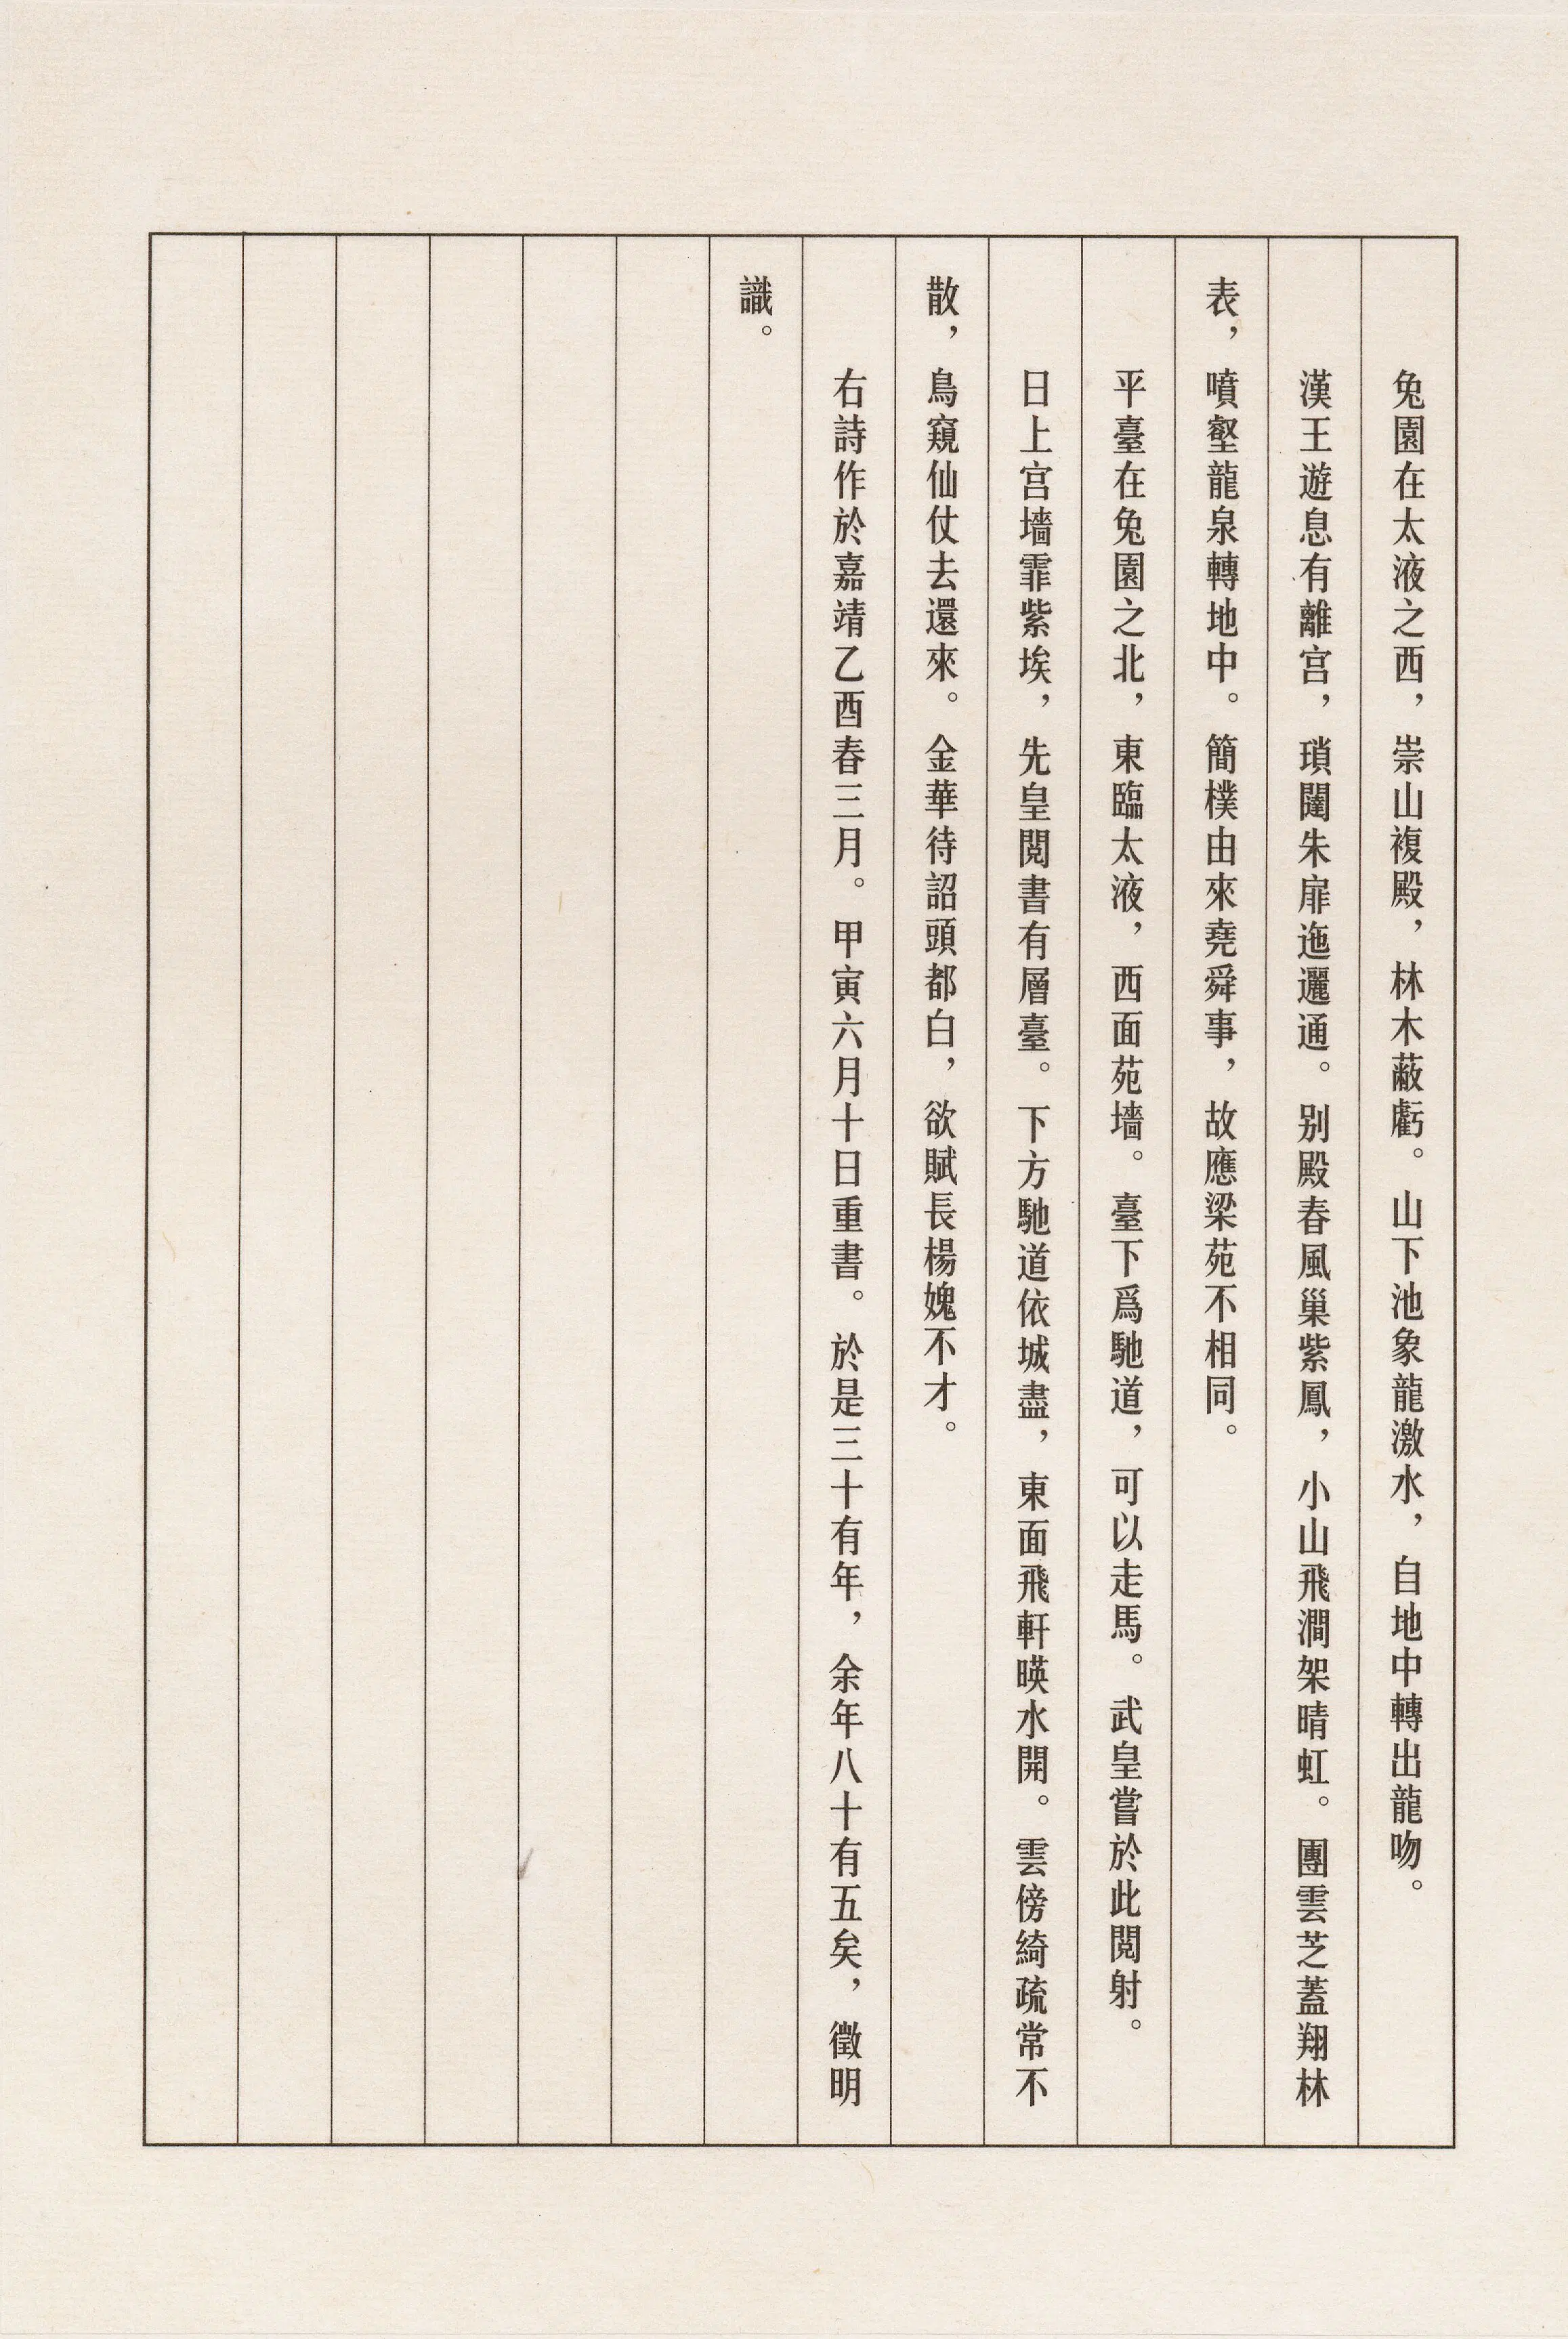 兔園在太液之西，崇山複殿，林木蔽虧。山下池象龍激水，自地中轉出龍吻。
漢王遊息有離宫，瑣闥朱扉迤邐通。别殿春風巢紫鳳，小山飛澗架晴虹。團雲芝蓋翔林
表，噴壑龍泉轉地中。簡樸由來堯舜事，故應梁苑不相同。
平臺在兔園之北，東臨太液，西面苑墻。臺下爲馳道，可以走馬。武皇嘗於此閲射。
日上宫墻霏紫埃，先皇閲書有層臺。下方馳道依城盡，東面飛軒暎水開。雲傍綺疏常不
散，鳥窺仙仗去還來。金華待詔頭都白，欲賦長楊媿不才。
右詩作於嘉靖乙酉春三月。甲寅六月十日重書。於是三十有年，余年八十有五矣，徵明
識。